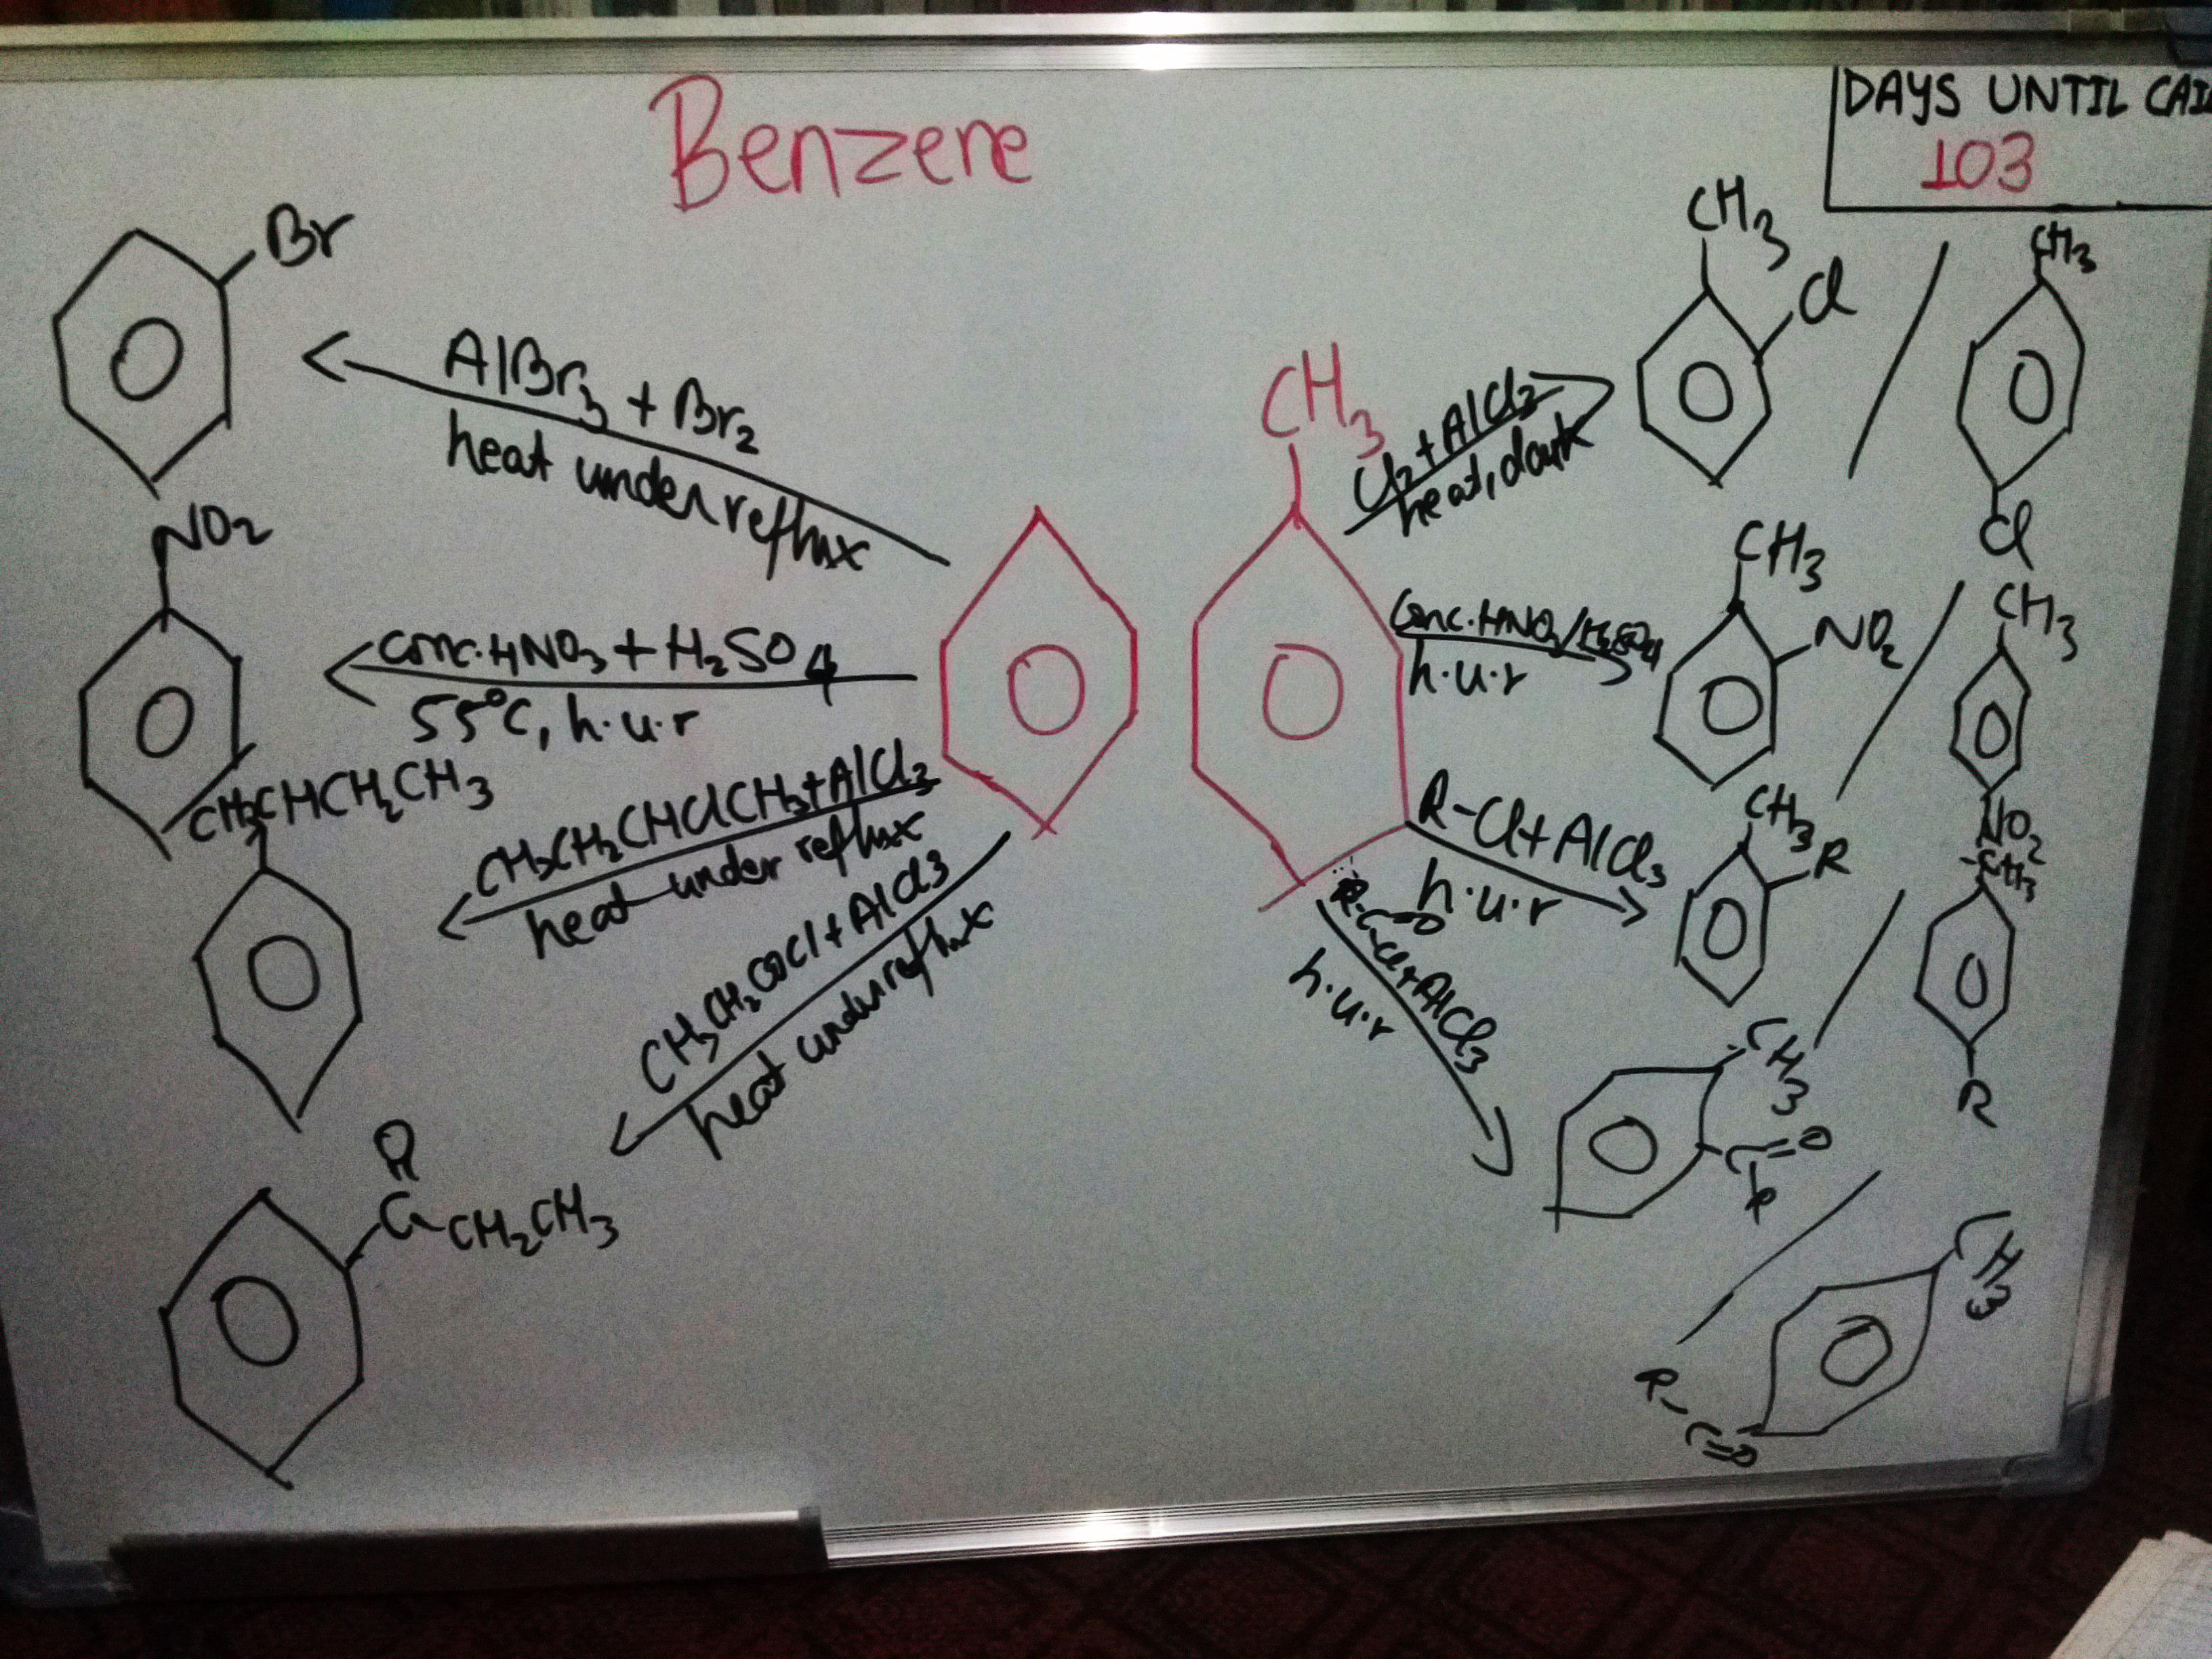 Benzene
DAYS UNTIL
103
Br
AlBr3 + Br2
heat under reflux
NO2
conc. HNO3 + H2SO4
55°C, h.u.r
CH3CHCH2CH3
CH3CH2CHClCH3+AlCl3
heat under reflux
CH3CH2COCl+AlCl3
heat under reflux
CH2CH3
CH3
Cl2+AlCl3
heat, dark
CH3
Cl
CH3
Cl
conc. HNO3/H2SO4
h.u.r
CH3
NO2
CH3
NO2
R-Cl+AlCl3
h.u.r
CH3
R
CH3
R
R-C=O
Cl+AlCl3
h.u.r
CH3
C=O
R
CH3
R
C=O